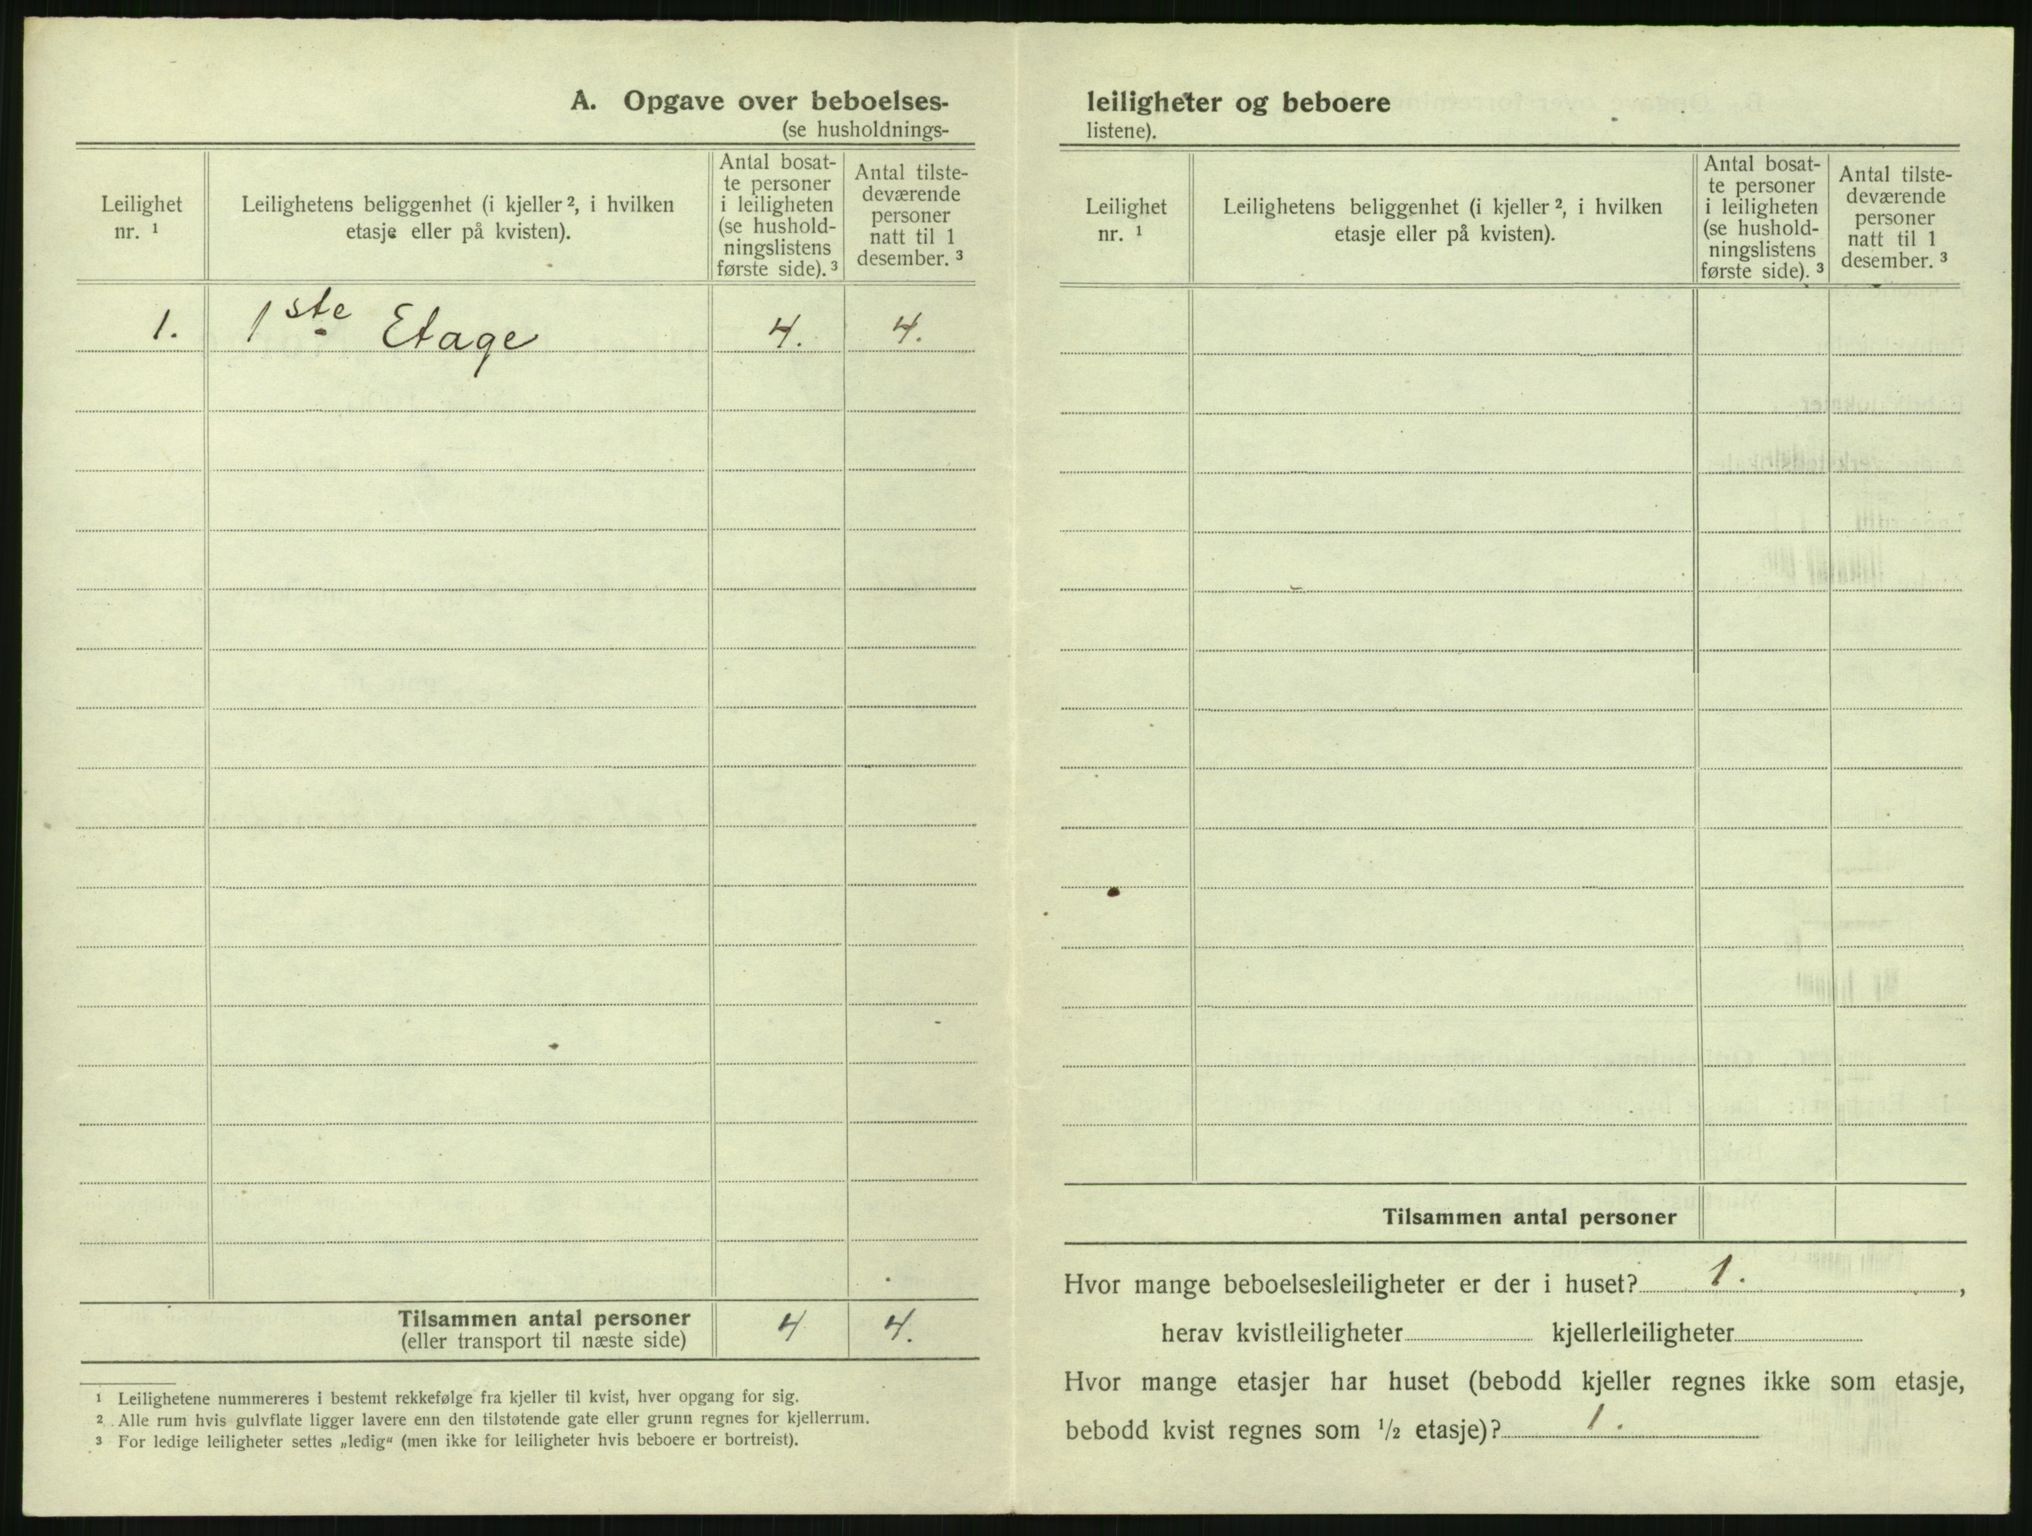 A. Opgave over beboelses-
(se husholdnings-
Leilighet
nr. ¹
Leilighetens beliggenhet (i kjeller ², i hvilken
etasje eller på kvisten).
Antal bosat-
te personer
i leiligheten
(se hushold-
ningslistens
første side). ³
Antal tilste-
deværende
personer
natt til 1
desember. ³
1. 1ste Etage 4. 4.
Tilsammen antal personer 4 4.
(eller transport til næste side)
¹ Leilighetene nummereres i bestemt rekkefølge fra kjeller til kvist, hver opgang for sig.
² Alle rum hvis gulvflate ligger lavere enn den tilstøtende gate eller grunn regnes for kjellerrum.
³ For ledige leiligheter settes „ledig“ (men ikke for leiligheter hvis beboere er bortreist).
leiligheter og beboere
listene).
Leilighet
nr. ¹
Leilighetens beliggenhet (i kjeller ², i hvilken
etasje eller på kvisten).
Antal bosat-
te personer
i leiligheten
(se hushold-
ningslistens
første side). ³
Antal tilste-
deværende
personer
natt til 1
desember. ³
Tilsammen antal personer
Hvor mange beboelsesleiligheter er der i huset? 1. ,
herav kvistleiligheter kjellerleiligheter
Hvor mange etasjer har huset (bebodd kjeller regnes ikke som etasje,
bebodd kvist regnes som ½ etasje)? 1.